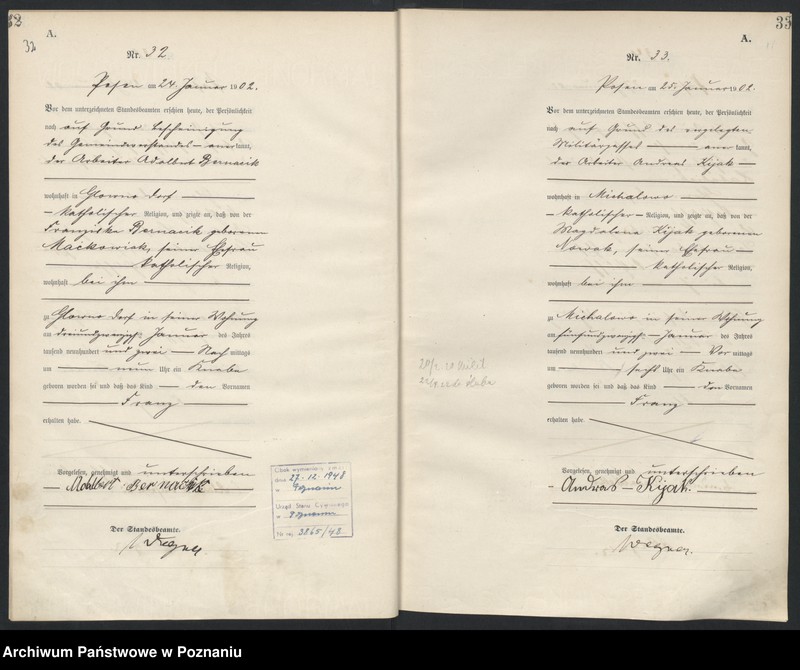 32
32
A.
Nr. 32
Posen am 24. Januar 1902.
Vor dem unterzeichneten Standesbeamten erschien heute, der Persönlichkeit
nach auf Grund Bescheinigung
des Gemeindevorstandes anerkannt,
der Arbeiter Adalbert Bernacik
wohnhaft in Glowno Dorf
katholischer Religion, und zeigte an, daß von der
Franziska Bernacik geborenen
Maćkowiak, seiner Ehefrau
katholischer Religion,
wohnhaft bei ihm
zu Glowno Dorf in seiner Wohnung
am dreiundzwanzigsten Januar des Jahres
tausend neunhundert und zwei Nachmittags
um neun Uhr ein Knabe
geboren worden sei und daß das Kind den Vornamen
Franz
erhalten habe.
Vorgelesen, genehmigt und unterschrieben
Adalbert Bernacik
Der Standesbeamte.
dnia 27.12.1948
w Poznaniu
Urząd Stanu Cywilnego
w Poznaniu
Nr rej. 3865/48
33
A.
Nr. 33.
Posen am 25. Januar 1902.
Vor dem unterzeichneten Standesbeamten erschien heute, der Persönlichkeit
nach auf Grund des vorgelegten
Militärpasses anerkannt,
der Arbeiter Andreas Kijak
wohnhaft in Michalowo
katholischer Religion, und zeigte an, daß von der
Magdalena Kijak geborenen
Nowak, seiner Ehefrau
katholischer Religion,
wohnhaft bei ihm
zu Michalowo in seiner Wohnung
am fünfundzwanzigsten Januar des Jahres
tausend neunhundert und zwei Vormittags
um sechs Uhr ein Knabe
geboren worden sei und daß das Kind den Vornamen
Franz
erhalten habe.
Vorgelesen, genehmigt und unterschrieben
Andras Kijak.
Der Standesbeamte.
Archiwum Państwowe w Poznaniu